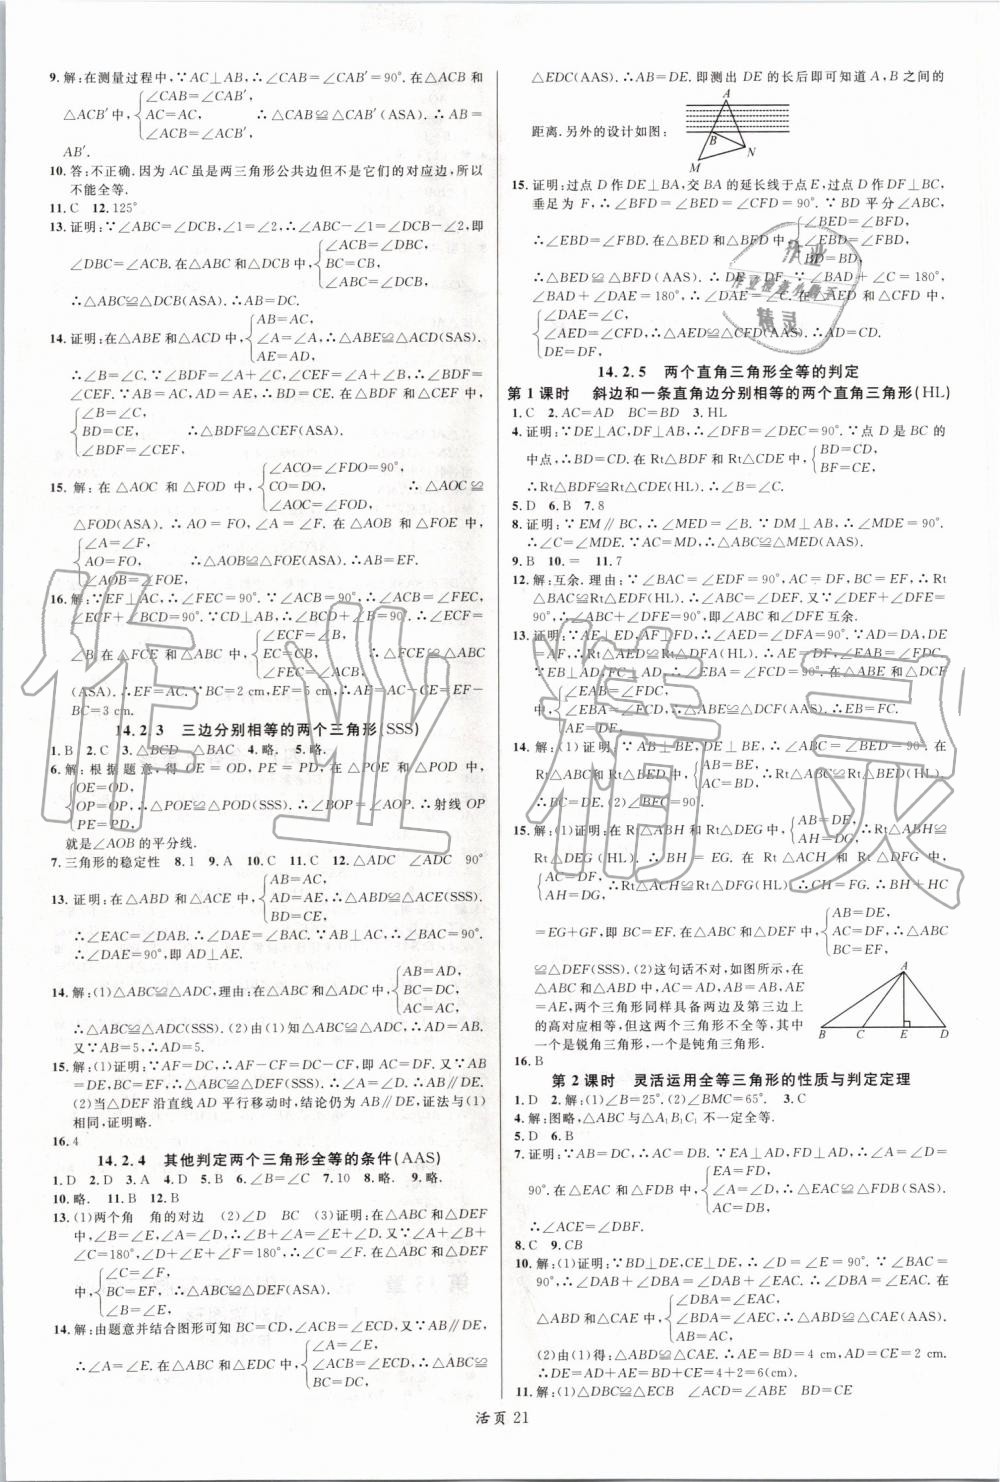 9. 解:在测量过程中,∵AC⊥AB,∴∠CAB=∠CAB′=90°. 在△ACB 和
△ACB′中, ∠CAB=∠CAB′,
AC=AC,
∠ACB=∠ACB′,
∴△CAB≌△CAB′(ASA). ∴AB=
AB′.
10. 答:不正确. 因为 AC 虽是两三角形公共边但不是它们的对应边,所以
不能全等.
11. C 12. 125°
13. 证明:∵∠ABC=∠DCB,∠1=∠2,∴∠ABC-∠1=∠DCB-∠2,即
∠DBC=∠ACB. 在△ABC 和△DCB 中, ∠ACB=∠DBC,
BC=BC,
∠ABC=∠DCB,
∴△ABC≌△DCB(ASA). ∴AB=DC.
14. 证明:在△ABE 和△ACD 中, AB=AC,
∠A=∠A,
AE=AD,
∴△ABE≌△ACD(SAS).
∴∠B=∠C. ∴∠BDF=∠CEF. 在△BDF 和
∠CEF. ∵AB=AC,AD=AE,∴BD=CE. 在△BDF 和△CEF 中,
∠B=∠C,
BD=CE,
∠BDF=∠CEF,
∴△BDF≌△CEF(ASA).
15. 解:在△AOC 和△FOD 中, ∠ACO=∠FDO=90°,
CO=DO,
∠AOC=∠FOD,
∴△AOC≌
△FOD(ASA). ∴AO=FO,∠A=∠F. 在△AOB 和△FOE 中,
∠A=∠F,
AO=FO,
∠AOB=∠FOE,
∴△AOB≌△FOE(ASA). ∴AB=EF.
16. 解:∵EF⊥AC,∴∠FEC=90°. ∵∠ACB=90°,∴∠ACB=∠FEC,
∠ECF+∠BCD=90°. ∵CD⊥AB,∴∠BCD+∠B=90°. ∴∠ECF=
∠B. 在△FCE 和△ABC 中, ∠ECF=∠B,
EC=CB,
∠FEC=∠ACB,
∴△FCE≌△ABC
(ASA). ∴EF=AC. ∵BC=2 cm,EF=5 cm,∴AE=AC-CE=EF-
BC=3 cm.
14.2.3 三边分别相等的两个三角形(SSS)
1. B 2. C 3. △BCD △BAC 4. 略. 5. 略.
6. 解:根据题意,得 OE=OD,PE=PD,在△POE 和△POD 中
OE=OD,
OP=OP,
PE=PD,
∴△POE≌△POD(SSS). ∴∠BOP=∠AOP. ∴射线 OP
就是∠AOB 的平分线.
7. 三角形的稳定性 8. 1 9. A 10. C 11. C 12. △ADC ∠ADC 90°
13. 证明:在△ABD 和△ACE 中, AB=AC,
AD=AE,
BD=CE,
∴△ABD≌△ACE(SSS).
∴∠EAC=∠DAB. ∴∠DAE=∠BAC. ∵AB⊥AC,∴∠BAC=90°.
∴∠DAE=90°,即 AD⊥AE.
14. 解:(1)△ABC≌△ADC,理由:在△ABC 和△ADC 中, AB=AD,
BC=DC,
AC=AC,
∴△ABC≌△ADC(SSS). (2)由(1)知△ABC≌△ADC,∴AD=AB.
又∵AB=5,∴AD=5.
15. 解:(1)证明:∵AF=DC,∴AF-CF=DC-CF,即 AC=DF. 又∵AB
=DE,BC=EF,∴△ABC≌△DEF(SSS).
(2)当△DEF 沿直线 AD 平行移动时,结论仍为 AB=DE,证法与(1)
相同,证明略.
16. 4
14.2.4 其他判定两个三角形全等的条件(AAS)
1. D 2. D 3. A 4. D 5. B 6. ∠B=∠C 7. 10 8. 略. 9. 略.
10. 略. 11. B 12. B
13. (1)两个角 角的对边 (2)∠D BC (3)证明:在△ABC 和△DEF
中,∠B=∠E,∠A=∠D,∴∠B+∠A=∠E+∠D. 又∵∠A+∠B+
∠C=180°,∠D+∠E+∠F=180°,∴∠C=∠F. 在△ABC 和△DEF
中, ∠C=∠F,
BC=EF,
∠B=∠E,
∴△ABC≌△DEF(ASA).
14. 解:由题意并结合图形可知 BC=CD,∠ACB=∠ECD,又∵AB∥DE,
∴∠A=∠E. 在△ABC 和△EDC 中, ∠A=∠E,
∠ACB=∠ECD,
BC=DC,
∴△ABC≌
△EDC(AAS). ∴AB=DE. 即测出 DE 的长后即可知道 A,B 之间的
距离. 另外的设计如图:
A
B
N
M
15. 证明:过点 D 作 DE⊥BA,交 BA 的延长线于点 E,过点 D 作 DF⊥BC,
垂足为 F,∴∠BFD=∠BED=∠CFD=90°. ∵BD 平分∠ABC,
∴∠EBD=∠FBD. 在△EBD 和△FBD 中, ∠BED=∠BFD,
∠EBD=∠FBD,
BD=BD,
∴△BED≌△BFD(AAS). ∴DE=DF. ∵∠BAD+∠C=180°,
∠BAD+∠DAE=180°,∴∠DAE=∠C. 在△AED 和△CFD 中,
∠DAE=∠C,
∠AED=∠CFD,
DE=DF,
∴△AED≌△CFD(AAS). ∴AD=CD.
14.2.5 两个直角三角形全等的判定
第 1 课时 斜边和一条直角边分别相等的两个直角三角形(HL)
1. C 2. AC=AD BC=BD 3. HL
4. 证明:∵DE⊥AC,DF⊥AB,∴∠DFB=∠DEC=90°. ∵点 D 是 BC 的
中点,∴BD=CD. 在 Rt△BDF 和 Rt△CDE 中, BD=CD,
BF=CE,
∴Rt△BDF≌Rt△CDE(HL). ∴∠B=∠C.
5. D 6. B 7. 8
8. 证明:∵EM∥BC,∴∠MED=∠B. ∵DM⊥AB,∴∠MDE=90°.
∴∠C=∠MDE. ∵AC=MD,∴△ABC≌△MED(AAS).
9. B 10. = 11. 7
12. 解:互余. 理由:∵∠BAC=∠EDF=90°,AC=DF,BC=EF,∴Rt
△BAC≌Rt△EDF(HL). ∴∠ABC=∠DEF. 又∵∠DEF+∠DFE=
90°,∴∠ABC+∠DFE=90°,即∠ABC 与∠DFE 互余.
13. 证明:∵AE⊥ED,AF⊥FD,∴∠AED=∠DFA=90°. ∵AD=DA,DE
=AF,∴Rt△AED≌Rt△DFA(HL). ∴AE=DF,∠EAD=∠FDA.
∵EB⊥AD,FC⊥AD,∴∠EBA=∠FCD=90°. 在△ABE 和△DCF
中, ∠EAB=∠FDC,
∠EBA=∠FCD,
AE=DF,
∴△ABE≌△DCF(AAS). ∴EB=FC.
14. 解:(1)证明:∵AB⊥BE,DE⊥AD,∴∠ABC=∠BED=90°. 在
Rt△ABC 和 Rt△BED 中, AB=BE,
AC=BD,
∴Rt△ABC≌Rt△BED(HL).
∴BC=DE. (2)∠BFC=90°.
15. 解:(1)证明:在 Rt△ABH 和 Rt△DEG 中, AB=DE,
AH=DG,
∴Rt△ABH≌Rt△DEG(HL). ∴BH=EG. 在 Rt△ACH 和 Rt△DFG 中,
AC=DF,
AH=DG,
∴Rt△ACH≌Rt△DFG(HL). ∴HC=GF. ∴BH+HC
=EG+GF,即 BC=EF. 在△ABC 和△DEF 中, AB=DE,
AC=DF,
BC=EF,
∴△ABC
≌△DEF(SSS). (2)这句话不对,如图所示,在
△ABC 和△ABD 中,AC=AD,AB=AB,AE
=AE,两个三角形同样具备两边及第三边上
的高对应相等,但这两个三角形不全等,其中
一个是锐角三角形,一个是钝角三角形.
A
B C E D
16. B
第 2 课时 灵活运用全等三角形的性质与判定定理
1. D 2. (1)∠B=25°. (2)∠BMC=65°. 3. C
4. 解:图略,△ABC 与△A₁B₁C₁ 不一定全等.
5. D 6. B
7. 证明:∵AB=CD,∴AC=DB. ∵EA⊥AD,FD⊥AD,∴∠A=∠D=
90°. 在△EAC 和△FDB 中, EA=FD,
∠A=∠D,
AC=DB,
∴△EAC≌△FDB(SAS).
∴∠ACE=∠DBF.
8. C 9. CB
10. 解:(1)证明:∵BD⊥DE,CE⊥DE,∴∠D=∠E=90°. ∴∠DBA+
∠DAB=90°. ∵AB⊥AC,∴∠DAB+∠EAC=90°. ∴∠DBA=∠EAC. 在
△ABD 和△CAE 中, ∠DBA=∠EAC,
∠D=∠E,
AB=CA,
∴△ABD≌△CAE(AAS).
(2)由(1)得:△ABD≌△CAE. ∴AE=BD=4 cm,AD=CE=2 cm.
∴DE=AD+AE=CE+BD=4+2=6(cm).
11. 解:(1)△DBC≌△ECB ∠ACD=∠ABE BD=CE
活页 21
作业
作业检查小助手
精灵
作业精灵